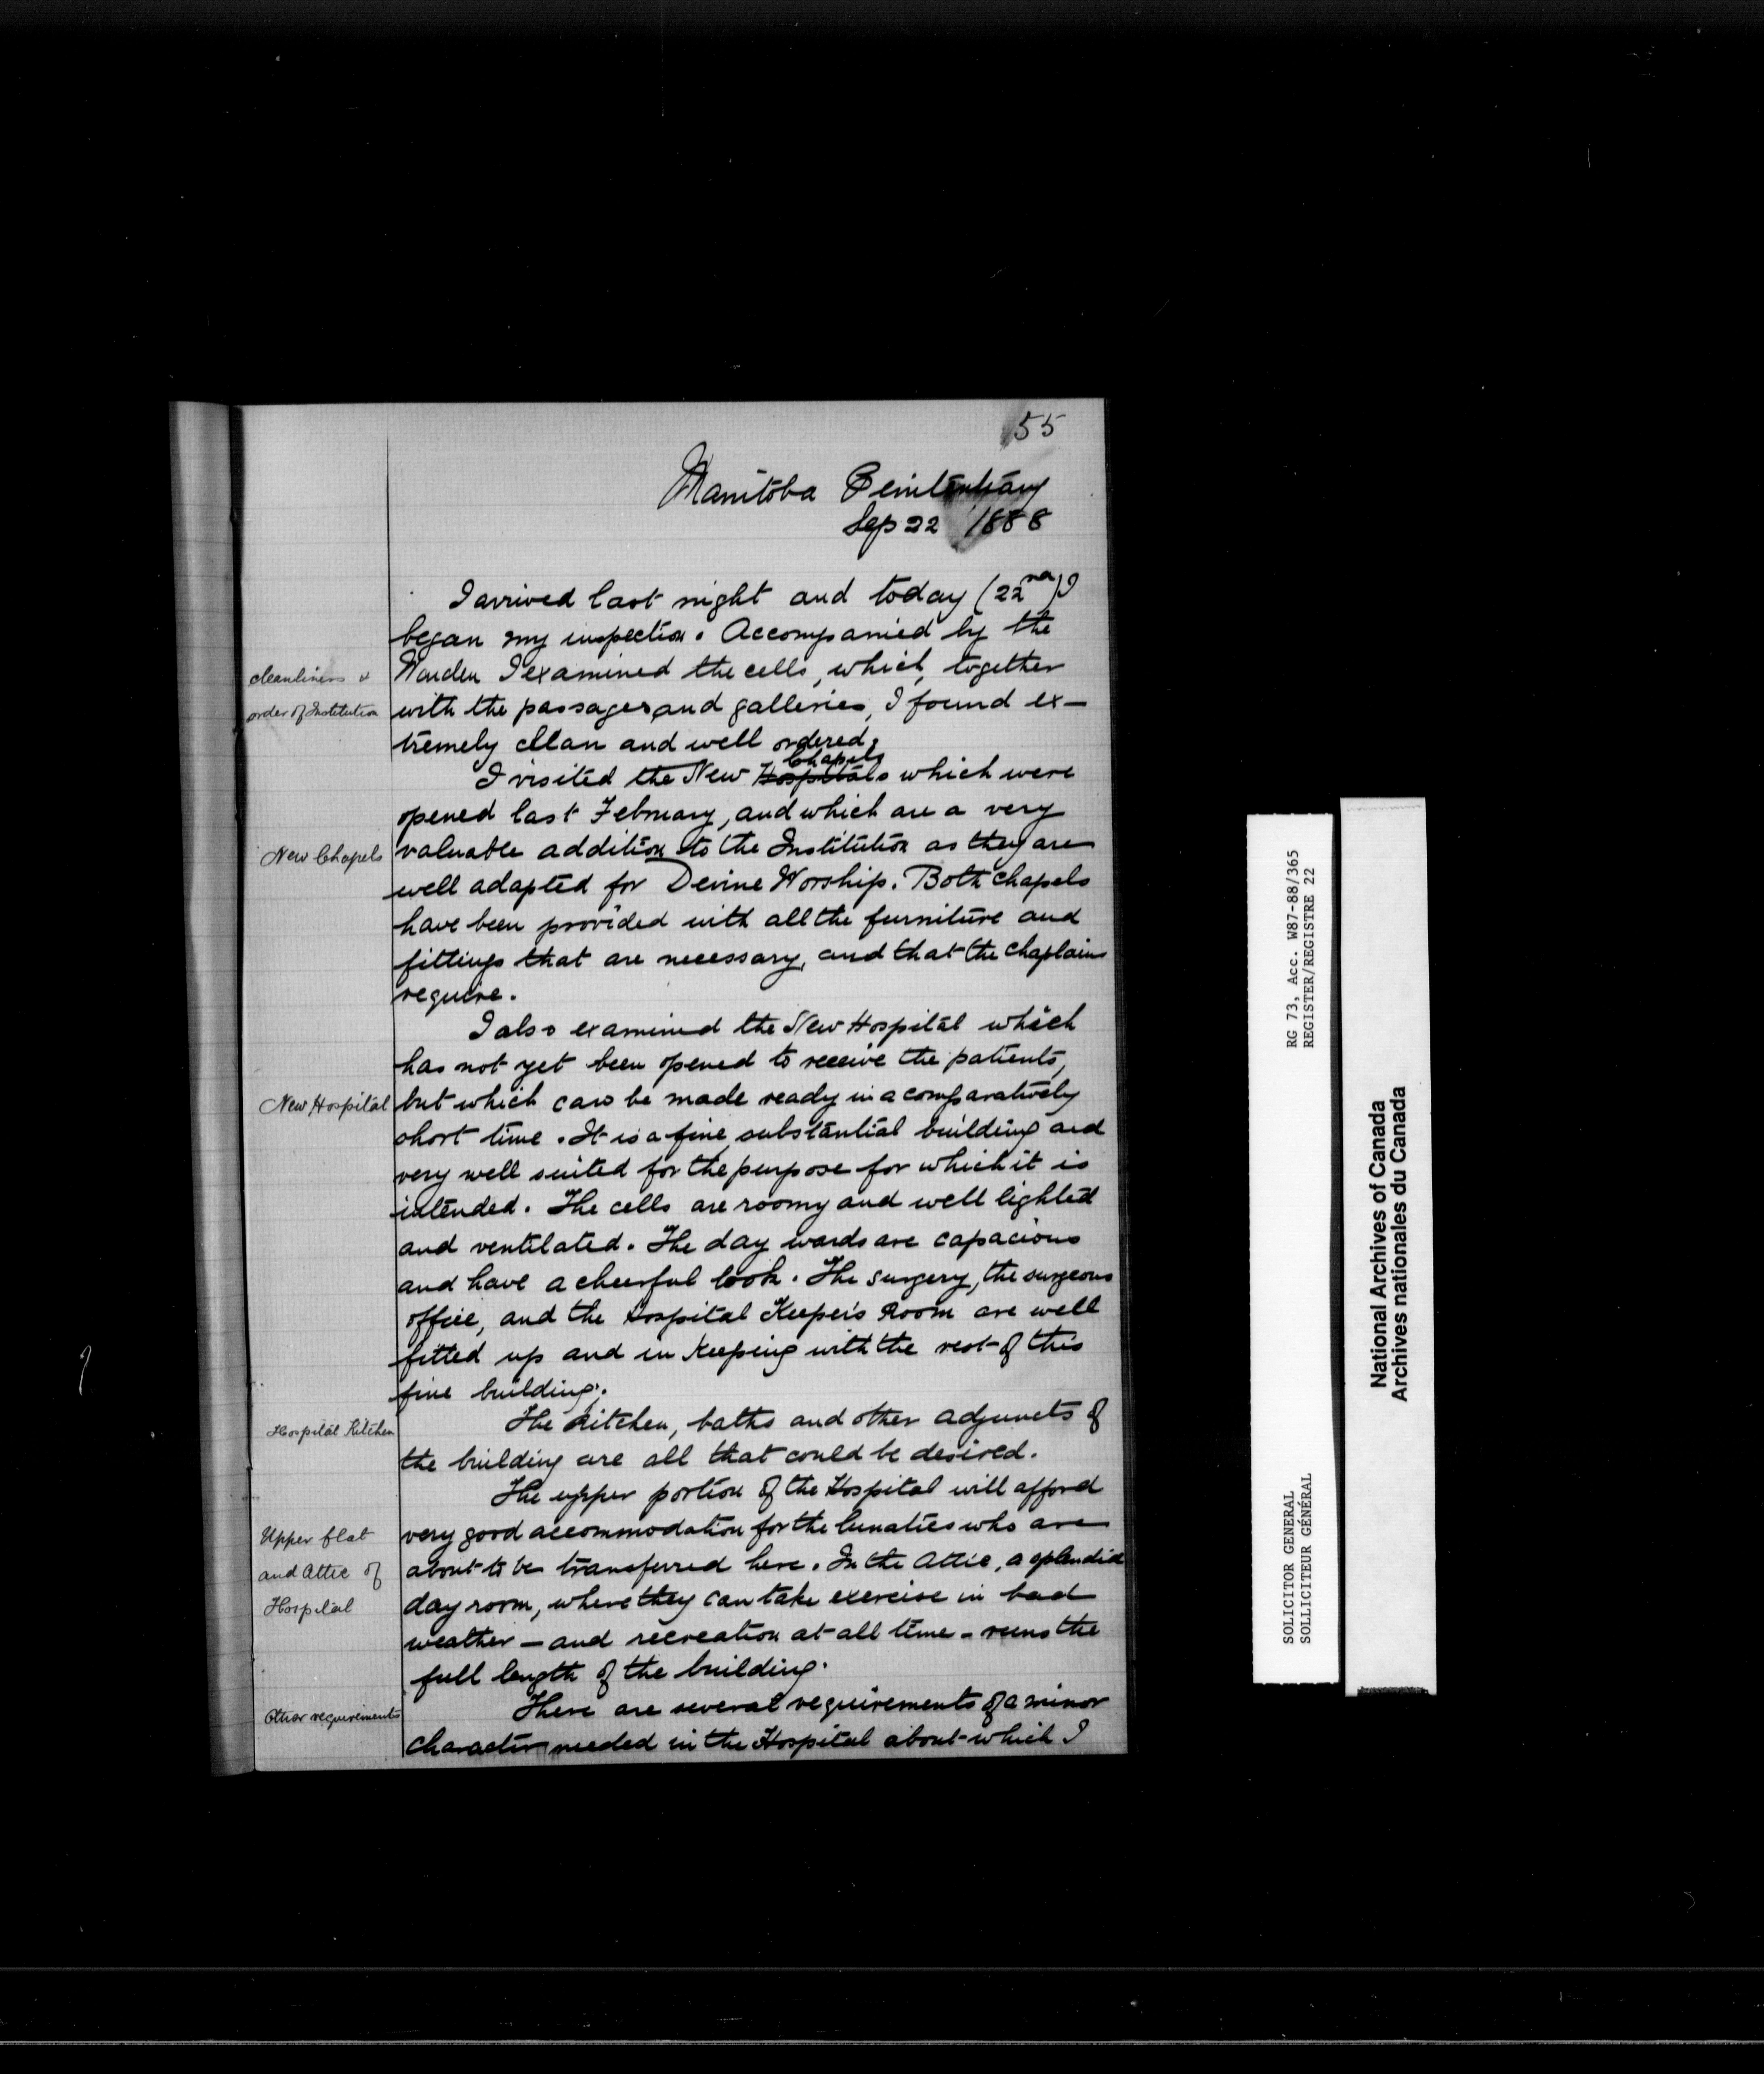 55
Manitoba Penitentiary
Sep 22 1888
I arrived last night and today (22nd) I
began my inspection. Accompanied by the
cleanliness &
Warden I examined the cells, which, together
order of Institution
with the passages and galleries, I found ex-
tremely clean and well ordered.
Chapels
I visited the New Hospitals which were
opened last February, and which are a very
New Chapels
valuable addition to the Institution as they are
well adapted for Devine Worship. Both chapels
have been provided with all the furniture and
fittings that are necessary, and that the chaplains
require.
I also examined the New Hospital which
has not yet been opened to receive the patients,
New Hospital
but which can be made ready in a comparatively
short time. It is a fine substantial building and
very well suited for the purpose for which it is
intended. The cells are roomy and well lighted
and ventilated. The day wards are capacious
and have a cheerful look. The surgery, the surgeons
office, and the Hospital Keeper's Room are well
fitted up and in keeping with the rest of this
fine building.
Hospital Kitchen
The Kitchen, baths and other adjuncts of
the building are all that could be desired.
The upper portion of the Hospital will afford
Upper flat
very good accommodation for the lunatics who are
and Attic of
about to be transferred here. In the Attic, a splendid
Hospital
day room, where they can take exercise in bad
weather - and recreation at all time - runs the
full length of the building.
Other requirements
There are several requirements of a minor
character needed in the Hospital about which I
RG 73, Acc. W87-88/365
REGISTER/REGISTRE 22
SOLICITOR GENERAL
SOLLICITEUR GÉNÉRAL
National Archives of Canada
Archives nationales du Canada